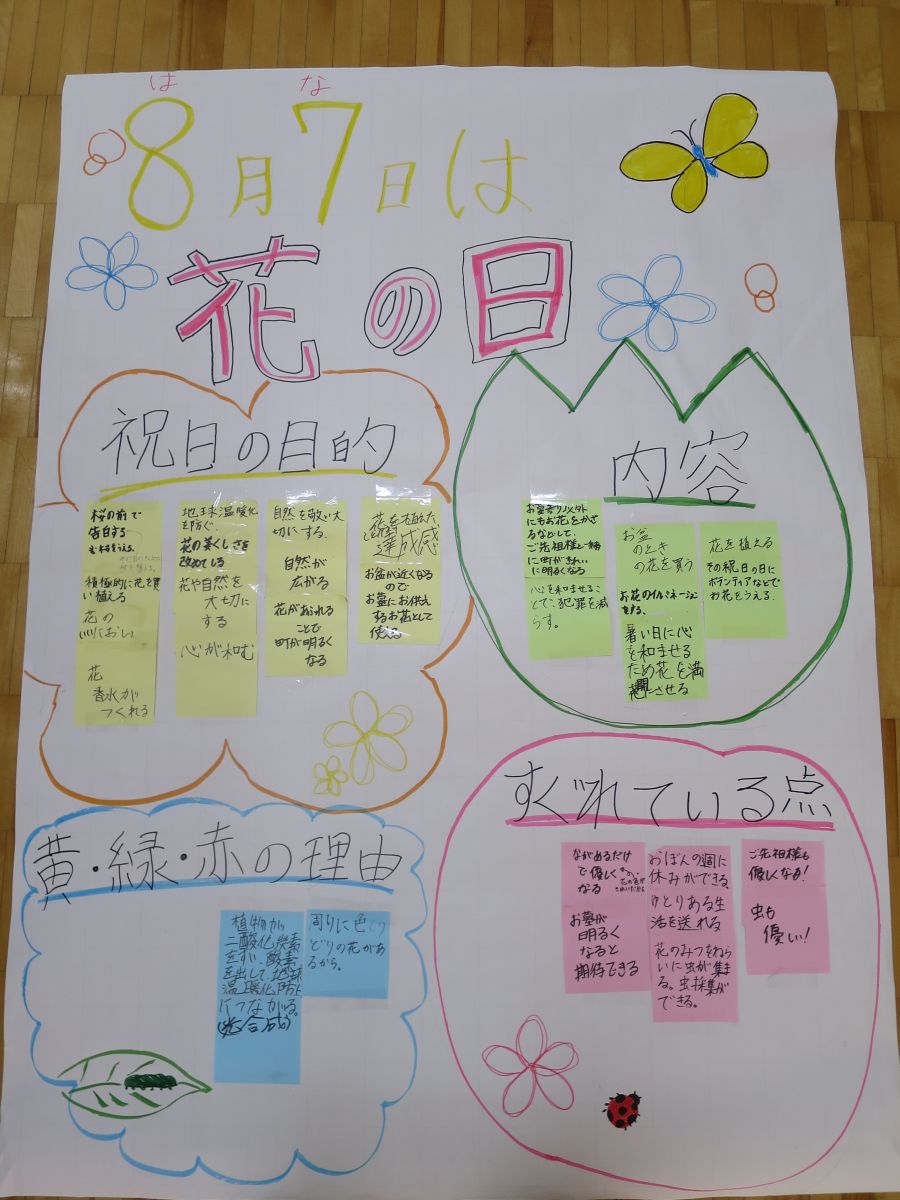 は な
8月7日は
花の日
祝日の目的
桜の前で
告白する
積極的に花を買
い植える
花の
においし
花
香水が
つくれる
地球温暖化
を防ぐ。
花の美しさを
改めている
花や自然を
大切に
する
心が和む
自然を敬い大
切にする。
自然が
広がる
花があふれる
ことで
町が明るく
なる
達成感
お盆が近くなる
ので
お墓にお供え
するお花として
使える
内容
お墓参り以外
にもお花をかざ
るなどして、
ご先祖様と一緒
に町がきれい
に明るくなる
心を和ませるこ
とで、犯罪を減
らす。
お盆
のとき
の花を買う
お花のイルミネーション
をする。
暑い日に心
を和ませる
ため花を満
開にさせる
花を植える
その祝日の日に
ボランティアなどで
お花をうえる。
黄・緑・赤の理由
植物が
二酸化炭素
をすい、酸素
を出して、地球
温暖化防止
につながる。
(光合成)
周りに色とり
どりの花があ
るから。
すぐれている点
ながめるだけ
で優しく
なる
お墓が
明るく
なると
期待できる
おぼんの週に
休みができる。
ゆとりある生
活を送れる
花のみつをねら
いに虫が集ま
る。虫採集が
できる。
ご先祖様も
優しくなる!
虫も
優しい!